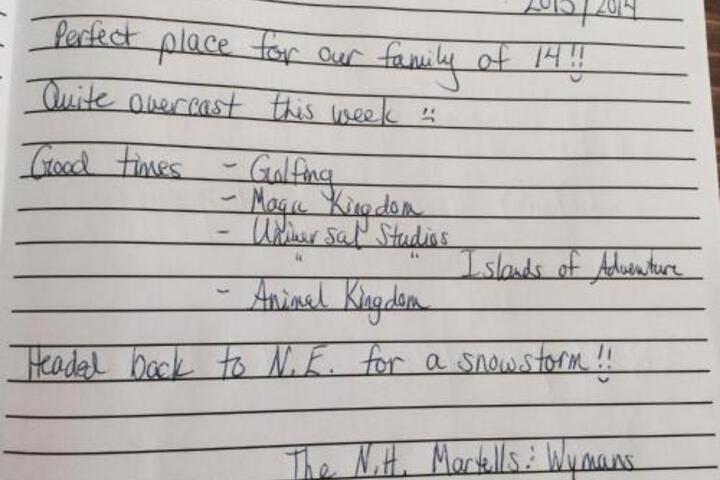 2013/2014
Perfect place for our family of 14!!
Quite overcast this week
Good times - Golfing
- Magic Kingdom
- Universal Studios
" " Islands of Adventure
- Animal Kingdom
Headed back to N.E. for a snowstorm!!
The N.H. Martells : Wymans